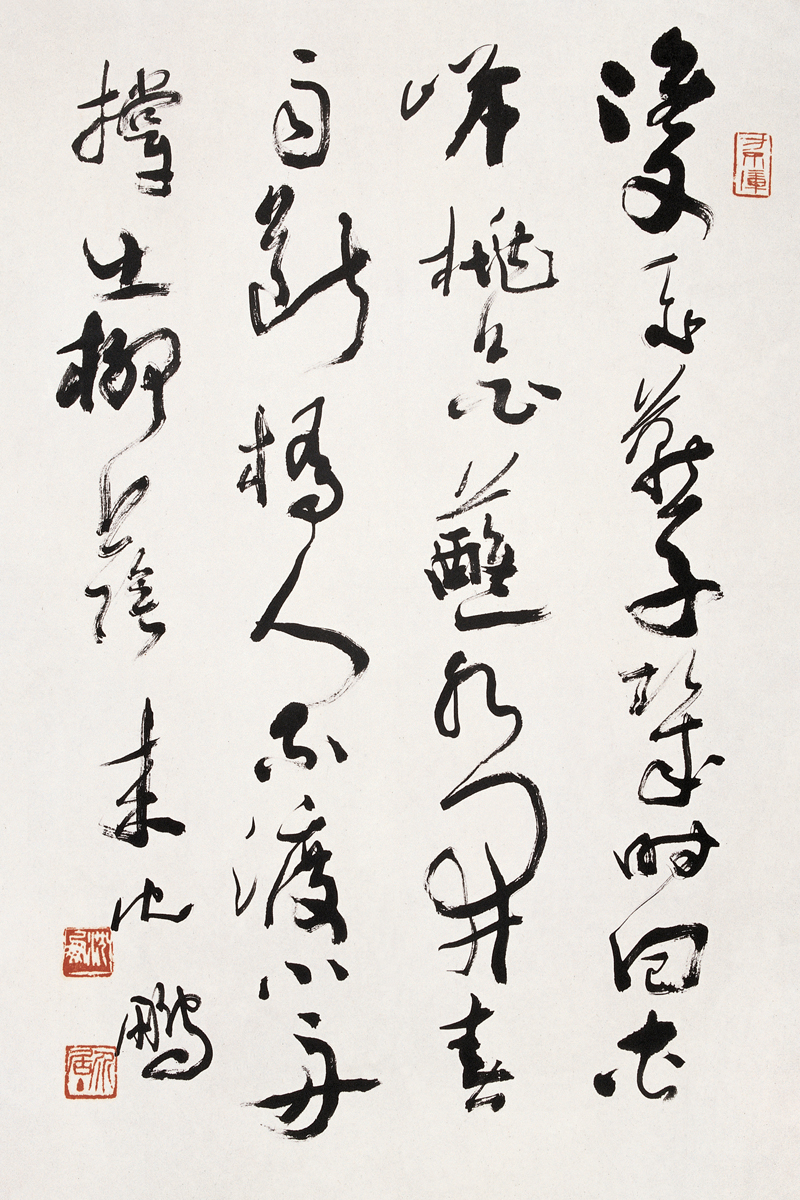 雙飛燕子幾時回夾
岸桃花蘸水開春
雨斷橋人不渡小舟
撐出柳蔭來 沈鵬
沈鵬